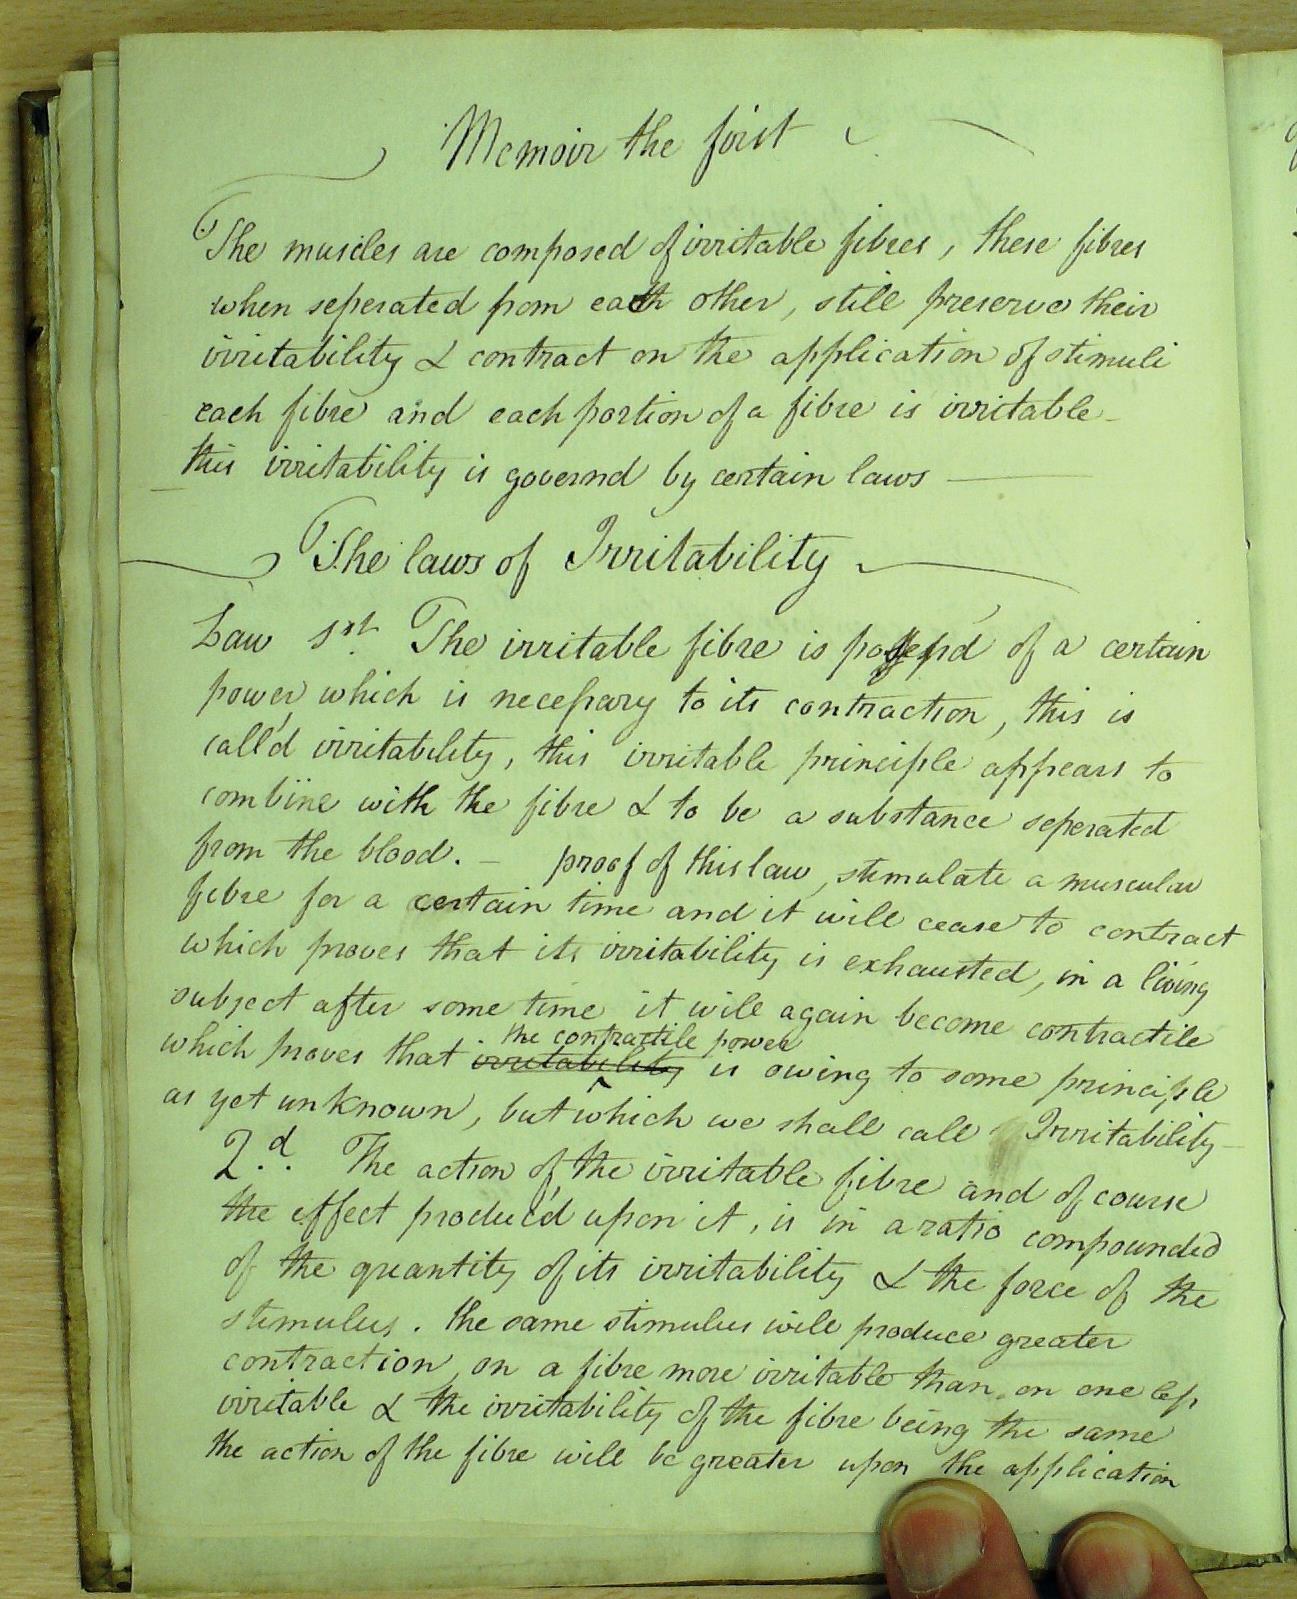 Memoir the first
The muscles are composed of irritable fibres, these fibres
when seperated from each other, still preserve their
irritability & contract on the application of stimuli
each fibre and each portion of a fibre is irritable
this irritability is governd by certain laws
The laws of Irritability
Law 1st. The irritable fibre is possess'd of a certain
power which is necessary to its contraction, this is
call'd irritability, this irritable principle appears to
combine with the fibre & to be a substance seperated
from the blood. - proof of this law, stimulate a muscular
fibre for a certain time and it will cease to contract
which proves that its irritability is exhausted, in a living
subject after some time it will again become contractile
the contractile power
which proves that irritability is owing to some principle
as yet unknown, but which we shall call Irritability
2.d. The action of the irritable fibre and of course
the effect produc'd upon it, is in a ratio compounded
of the quantity of its irritability & the force of the
stimulus. the same stimulus will produce greater
contraction, on a fibre more irritable than on one less
irritable & the irritability of the fibre being the same
the action of the fibre will be greater upon the application